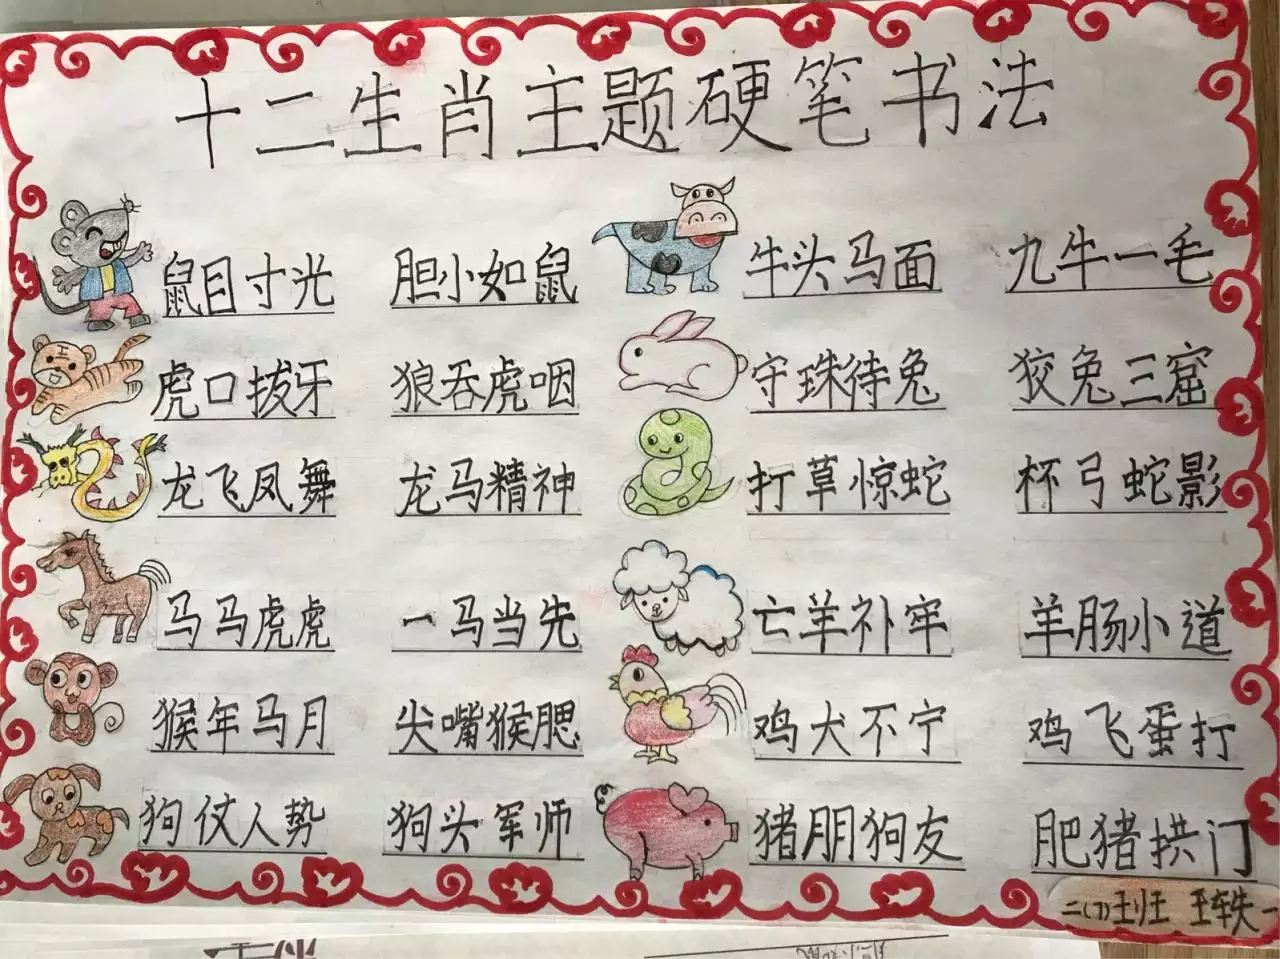 十二生肖主题硬笔书法
鼠目寸光 胆小如鼠 牛头马面 九牛一毛
虎口拔牙 狼吞虎咽 守珠待兔 狡兔三窟
龙飞凤舞 龙马精神 打草惊蛇 杯弓蛇影
马马虎虎 一马当先 亡羊补牢 羊肠小道
猴年马月 尖嘴猴腮 鸡犬不宁 鸡飞蛋打
狗仗人势 狗头军师 猪朋狗友 肥猪拱门